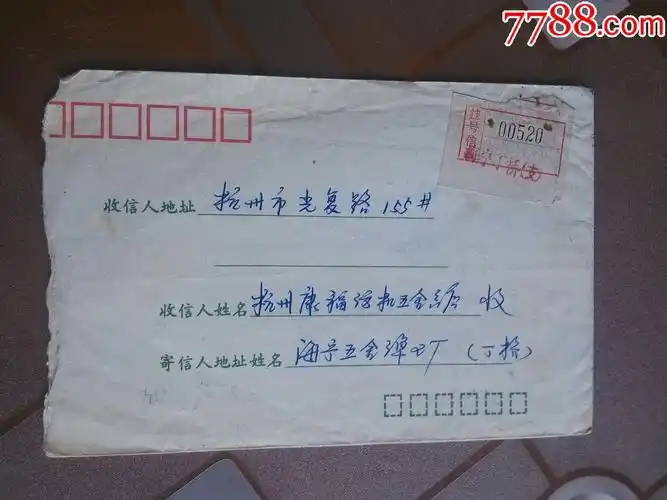 7788.com
挂号信
00520
收信人地址 杭州市光复路155#
收信人姓名 杭州康福 五金 收
寄信人地址姓名 海宁五金弹 厂(丁桥)